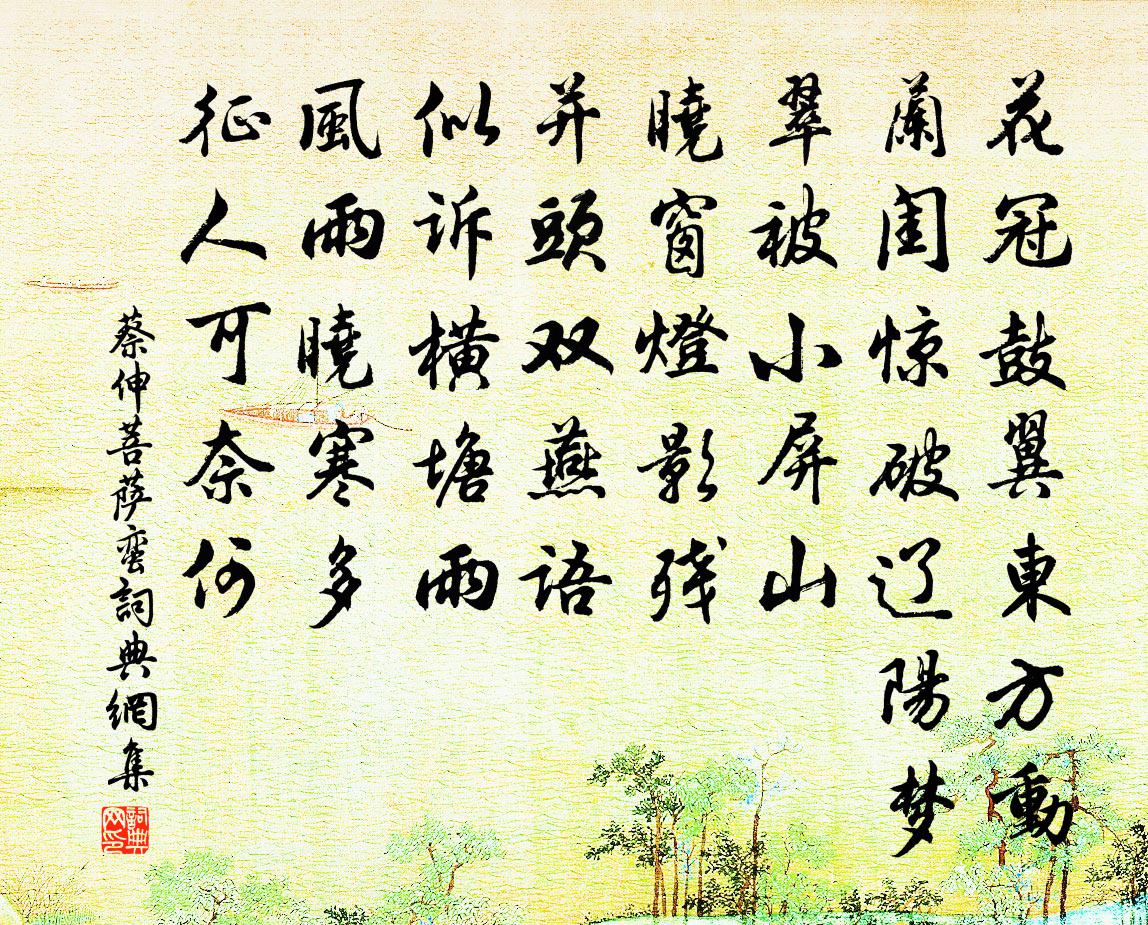 花冠鼓翼東方動
蘭闺惊破辽陽梦
翠被小屏山
曉窗燈影残
并頭双燕語
似诉横塘雨
風雨曉寒多
征人可奈何
蔡伸菩萨蛮詞典網集
詞典
网印